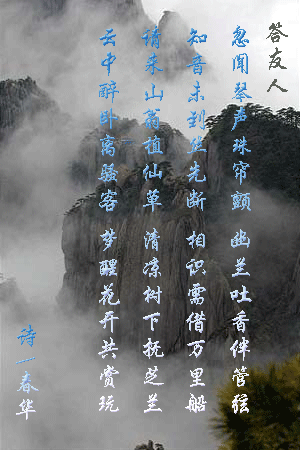 答友人
忽闻琴声珠帘颤 幽兰吐香伴管弦
知音未到丝先断 相识需借万里船
请来山翁植仙草 清凉树下抚芝兰
云中醉卧离骚客 梦醒花开共赏玩
诗一春华